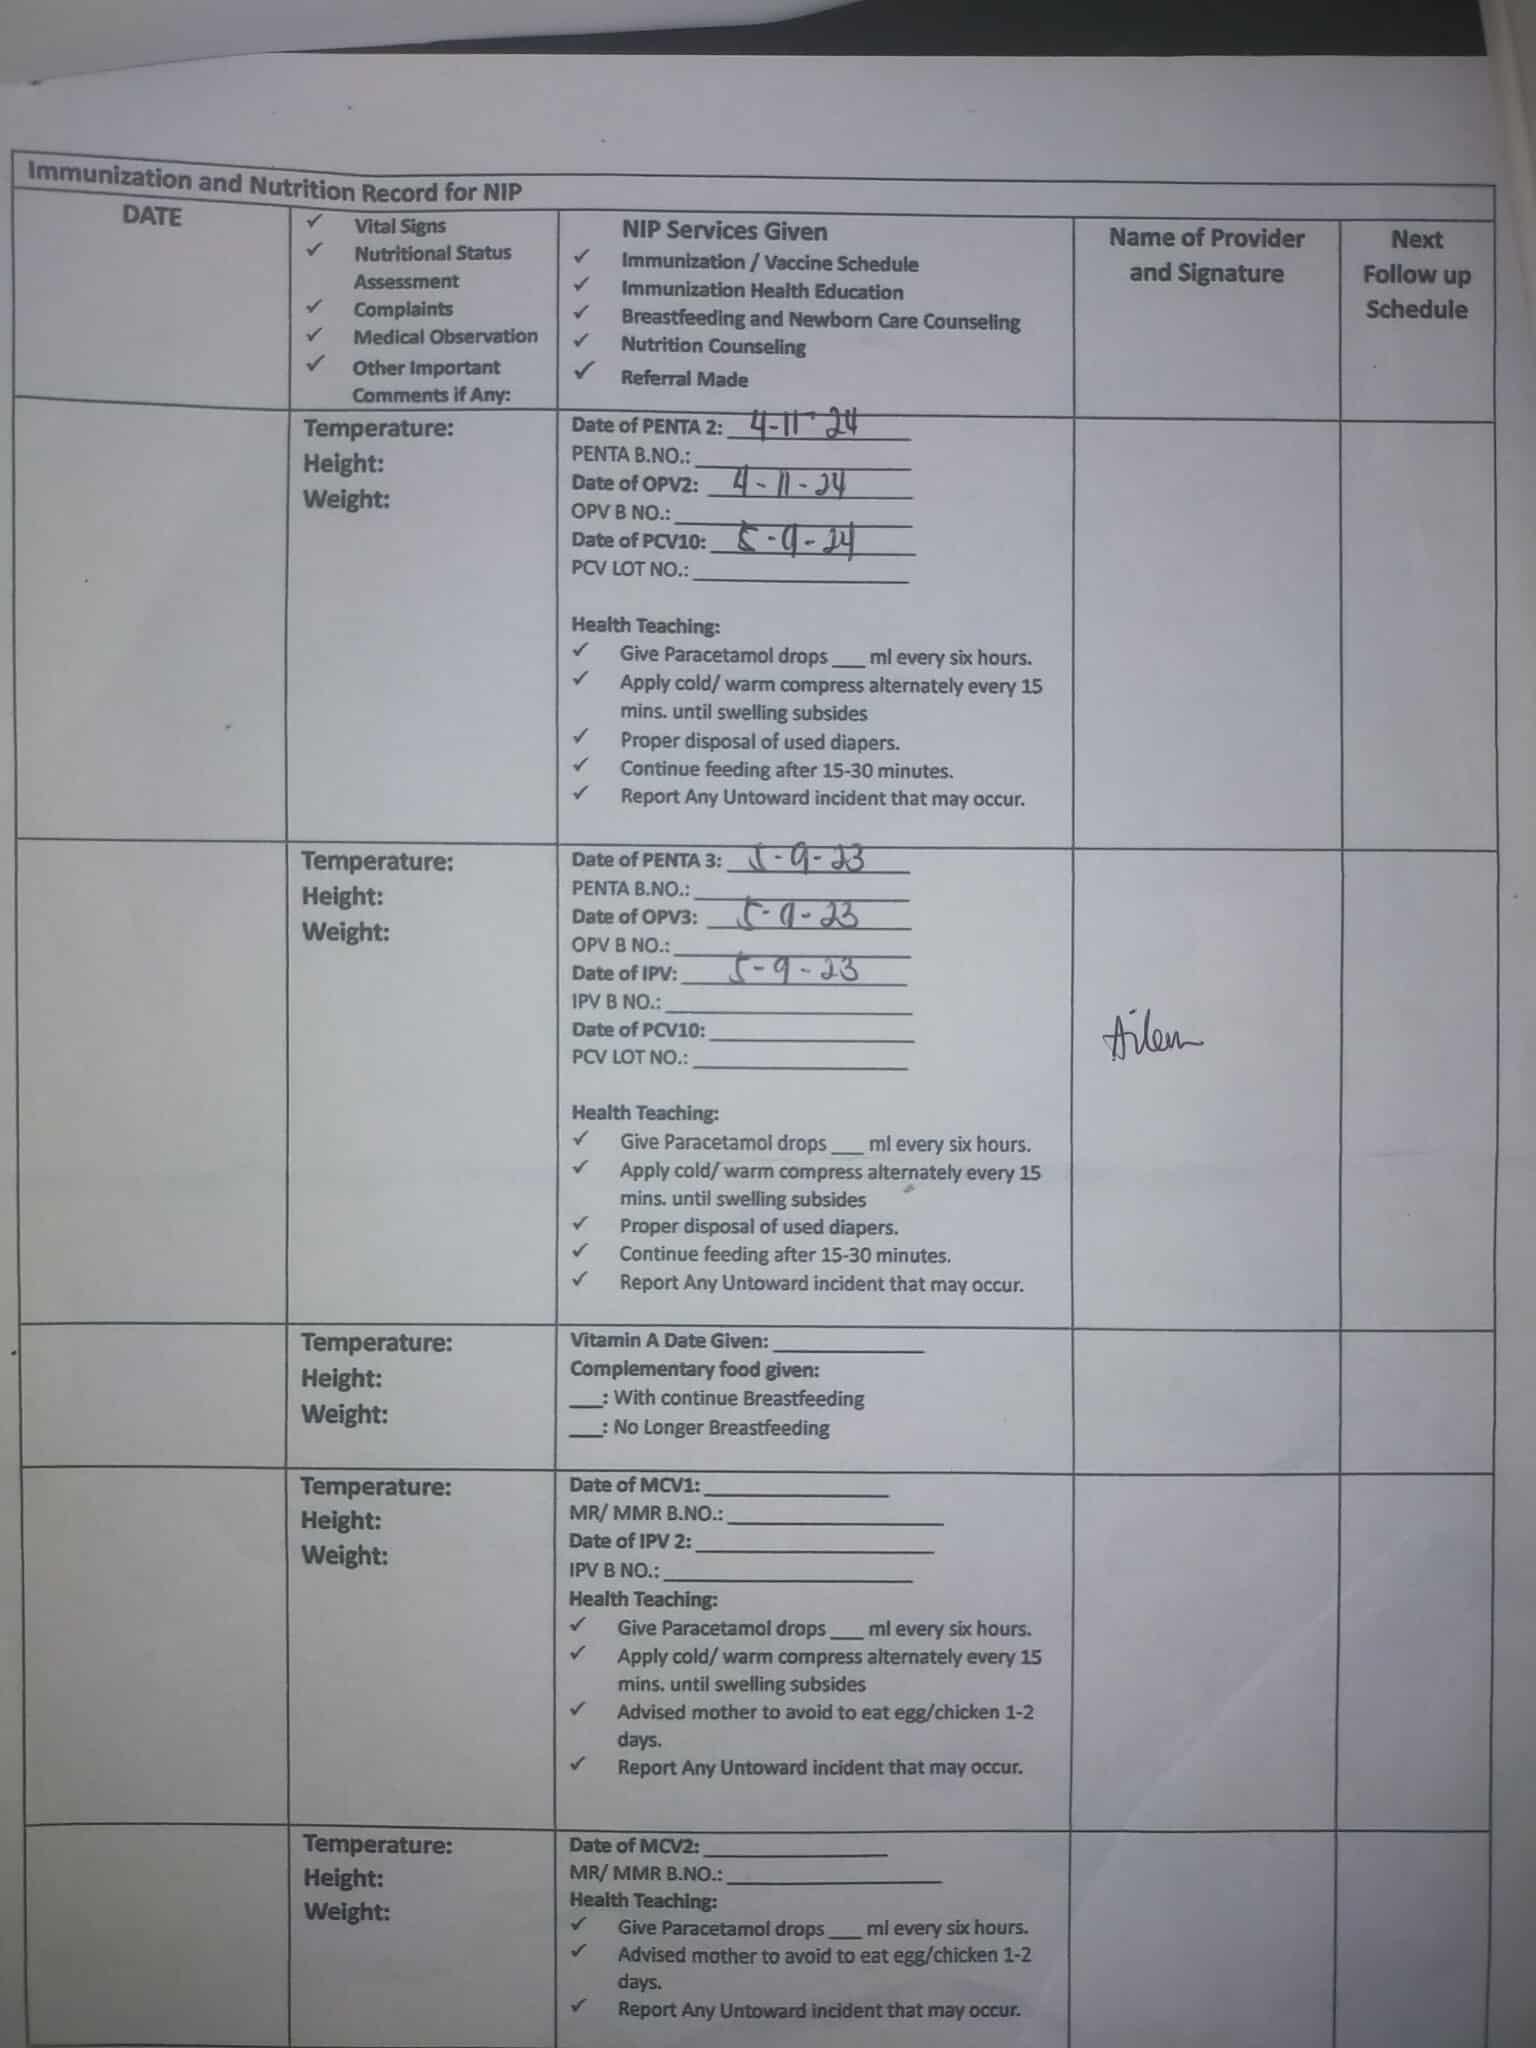 Immunization and Nutrition Record for NIP
DATE
✓ Vital Signs
✓ Nutritional Status
Assessment
✓ Complaints
✓ Medical Observation
✓ Other Important
Comments if Any:
NIP Services Given
✓ Immunization / Vaccine Schedule
✓ Immunization Health Education
✓ Breastfeeding and Newborn Care Counseling
✓ Nutrition Counseling
✓ Referral Made
Name of Provider
and Signature
Next
Follow up
Schedule
Temperature:
Height:
Weight:
Date of PENTA 2: 4-11-24
PENTA B.NO.:
Date of OPV2: 4-11-24
OPV B NO.:
Date of PCV10: 5-9-24
PCV LOT NO.:
Health Teaching:
✓ Give Paracetamol drops ___ ml every six hours.
✓ Apply cold/ warm compress alternately every 15
mins. until swelling subsides
✓ Proper disposal of used diapers.
✓ Continue feeding after 15-30 minutes.
✓ Report Any Untoward incident that may occur.
Temperature:
Height:
Weight:
Date of PENTA 3: 5-9-23
PENTA B.NO.:
Date of OPV3: 5-9-23
OPV B NO.:
Date of IPV: 5-9-23
IPV B NO.:
Date of PCV10:
PCV LOT NO.:
Health Teaching:
✓ Give Paracetamol drops ___ ml every six hours.
✓ Apply cold/ warm compress alternately every 15
mins. until swelling subsides
✓ Proper disposal of used diapers.
✓ Continue feeding after 15-30 minutes.
✓ Report Any Untoward incident that may occur.
Ailem
Temperature:
Height:
Weight:
Vitamin A Date Given:
Complementary food given:
___: With continue Breastfeeding
___: No Longer Breastfeeding
Temperature:
Height:
Weight:
Date of MCV1:
MR/ MMR B.NO.:
Date of IPV 2:
IPV B NO.:
Health Teaching:
✓ Give Paracetamol drops ___ ml every six hours.
✓ Apply cold/ warm compress alternately every 15
mins. until swelling subsides
✓ Advised mother to avoid to eat egg/chicken 1-2
days.
✓ Report Any Untoward incident that may occur.
Temperature:
Height:
Weight:
Date of MCV2:
MR/ MMR B.NO.:
Health Teaching:
✓ Give Paracetamol drops ___ ml every six hours.
✓ Advised mother to avoid to eat egg/chicken 1-2
days.
✓ Report Any Untoward incident that may occur.